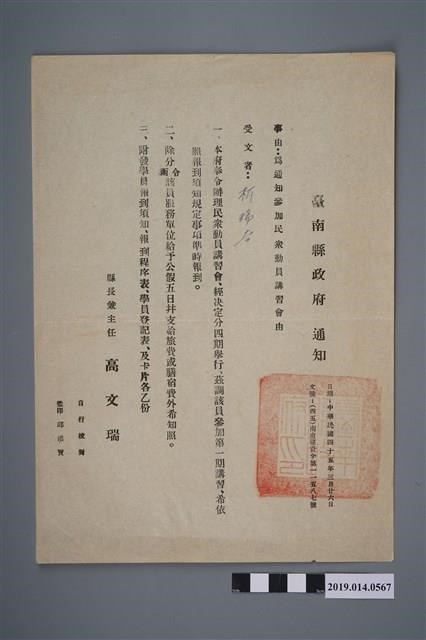 臺南縣政府 通知
日期：中華民國四十五年三月廿六日
文號：(四五)南府動訓字第一一五八七號
事由：為通知參加民衆動員講習會由
受文者：
一、本府奉令辦理民衆動員講習會、經決定分四期舉行、茲調該員參加第一期講習、希依
照報到須知規定事項準時報到。
二、除分令該員服務單位給予公假五日幷支給旅費或膳宿費外希知照。
三、附發學員報到須知、報到程序表、學員登記表、及卡片各乙份
縣長兼主任 高文瑞
自行校對
監印 邱添寶
2019.014.0567